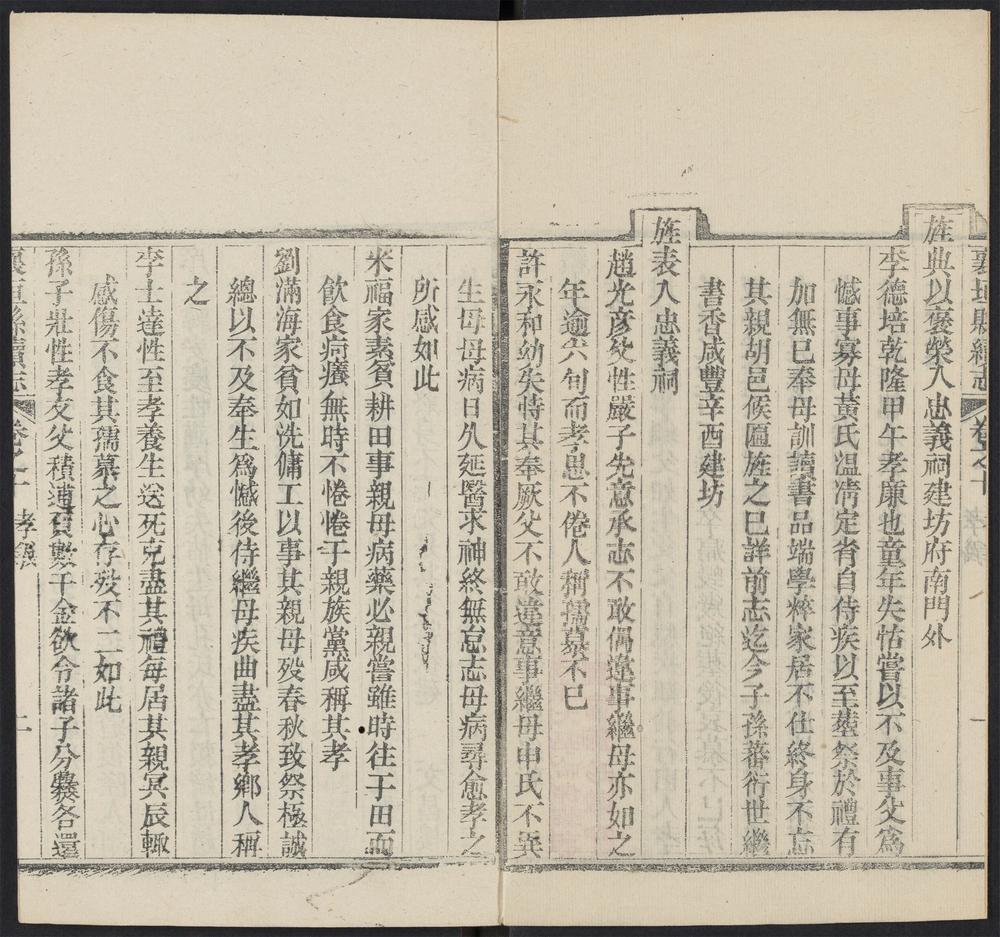 襄垣縣續志 卷之十
旌典以褒榮入忠義祠建坊府南門外
李德培乾隆甲午孝廉也童年失怙嘗以不及事父爲
憾事寡母黃氏温凊定省自侍疾以至塟祭於禮有
加無已奉母訓讀書品端學粹家居不仕終身不忘
其親胡邑候匾旌之已詳前志迄今子孫蕃衍世繼
書香咸豐辛酉建坊
旌表入忠義祠
趙光彦父性嚴子先意承志不敢偶違事繼母亦如之
年逾六旬而孝思不倦人稱孺慕不已
許永和幼失恃其奉厥父不敢違意事繼母申氏不異
生母母病日久延醫求神終無怠志母病尋愈孝之
所感如此
來福家素貧耕田事親母病藥必親嘗雖時往于田而
飲食疴癢無時不惓惓于親族黨咸稱其孝
劉滿海家貧如洗傭工以事其親母殁春秋致祭極誠
總以不及奉生爲憾後侍繼母疾曲盡其孝鄉人稱
之
李士達性至孝養生送死克盡其禮每居其親冥辰輙
感傷不食其孺慕之心存殁不二如此
孫子壯性孝友父積逋負數千金欲令諸子分爨各還
襄垣縣續志 卷之十 孝 二